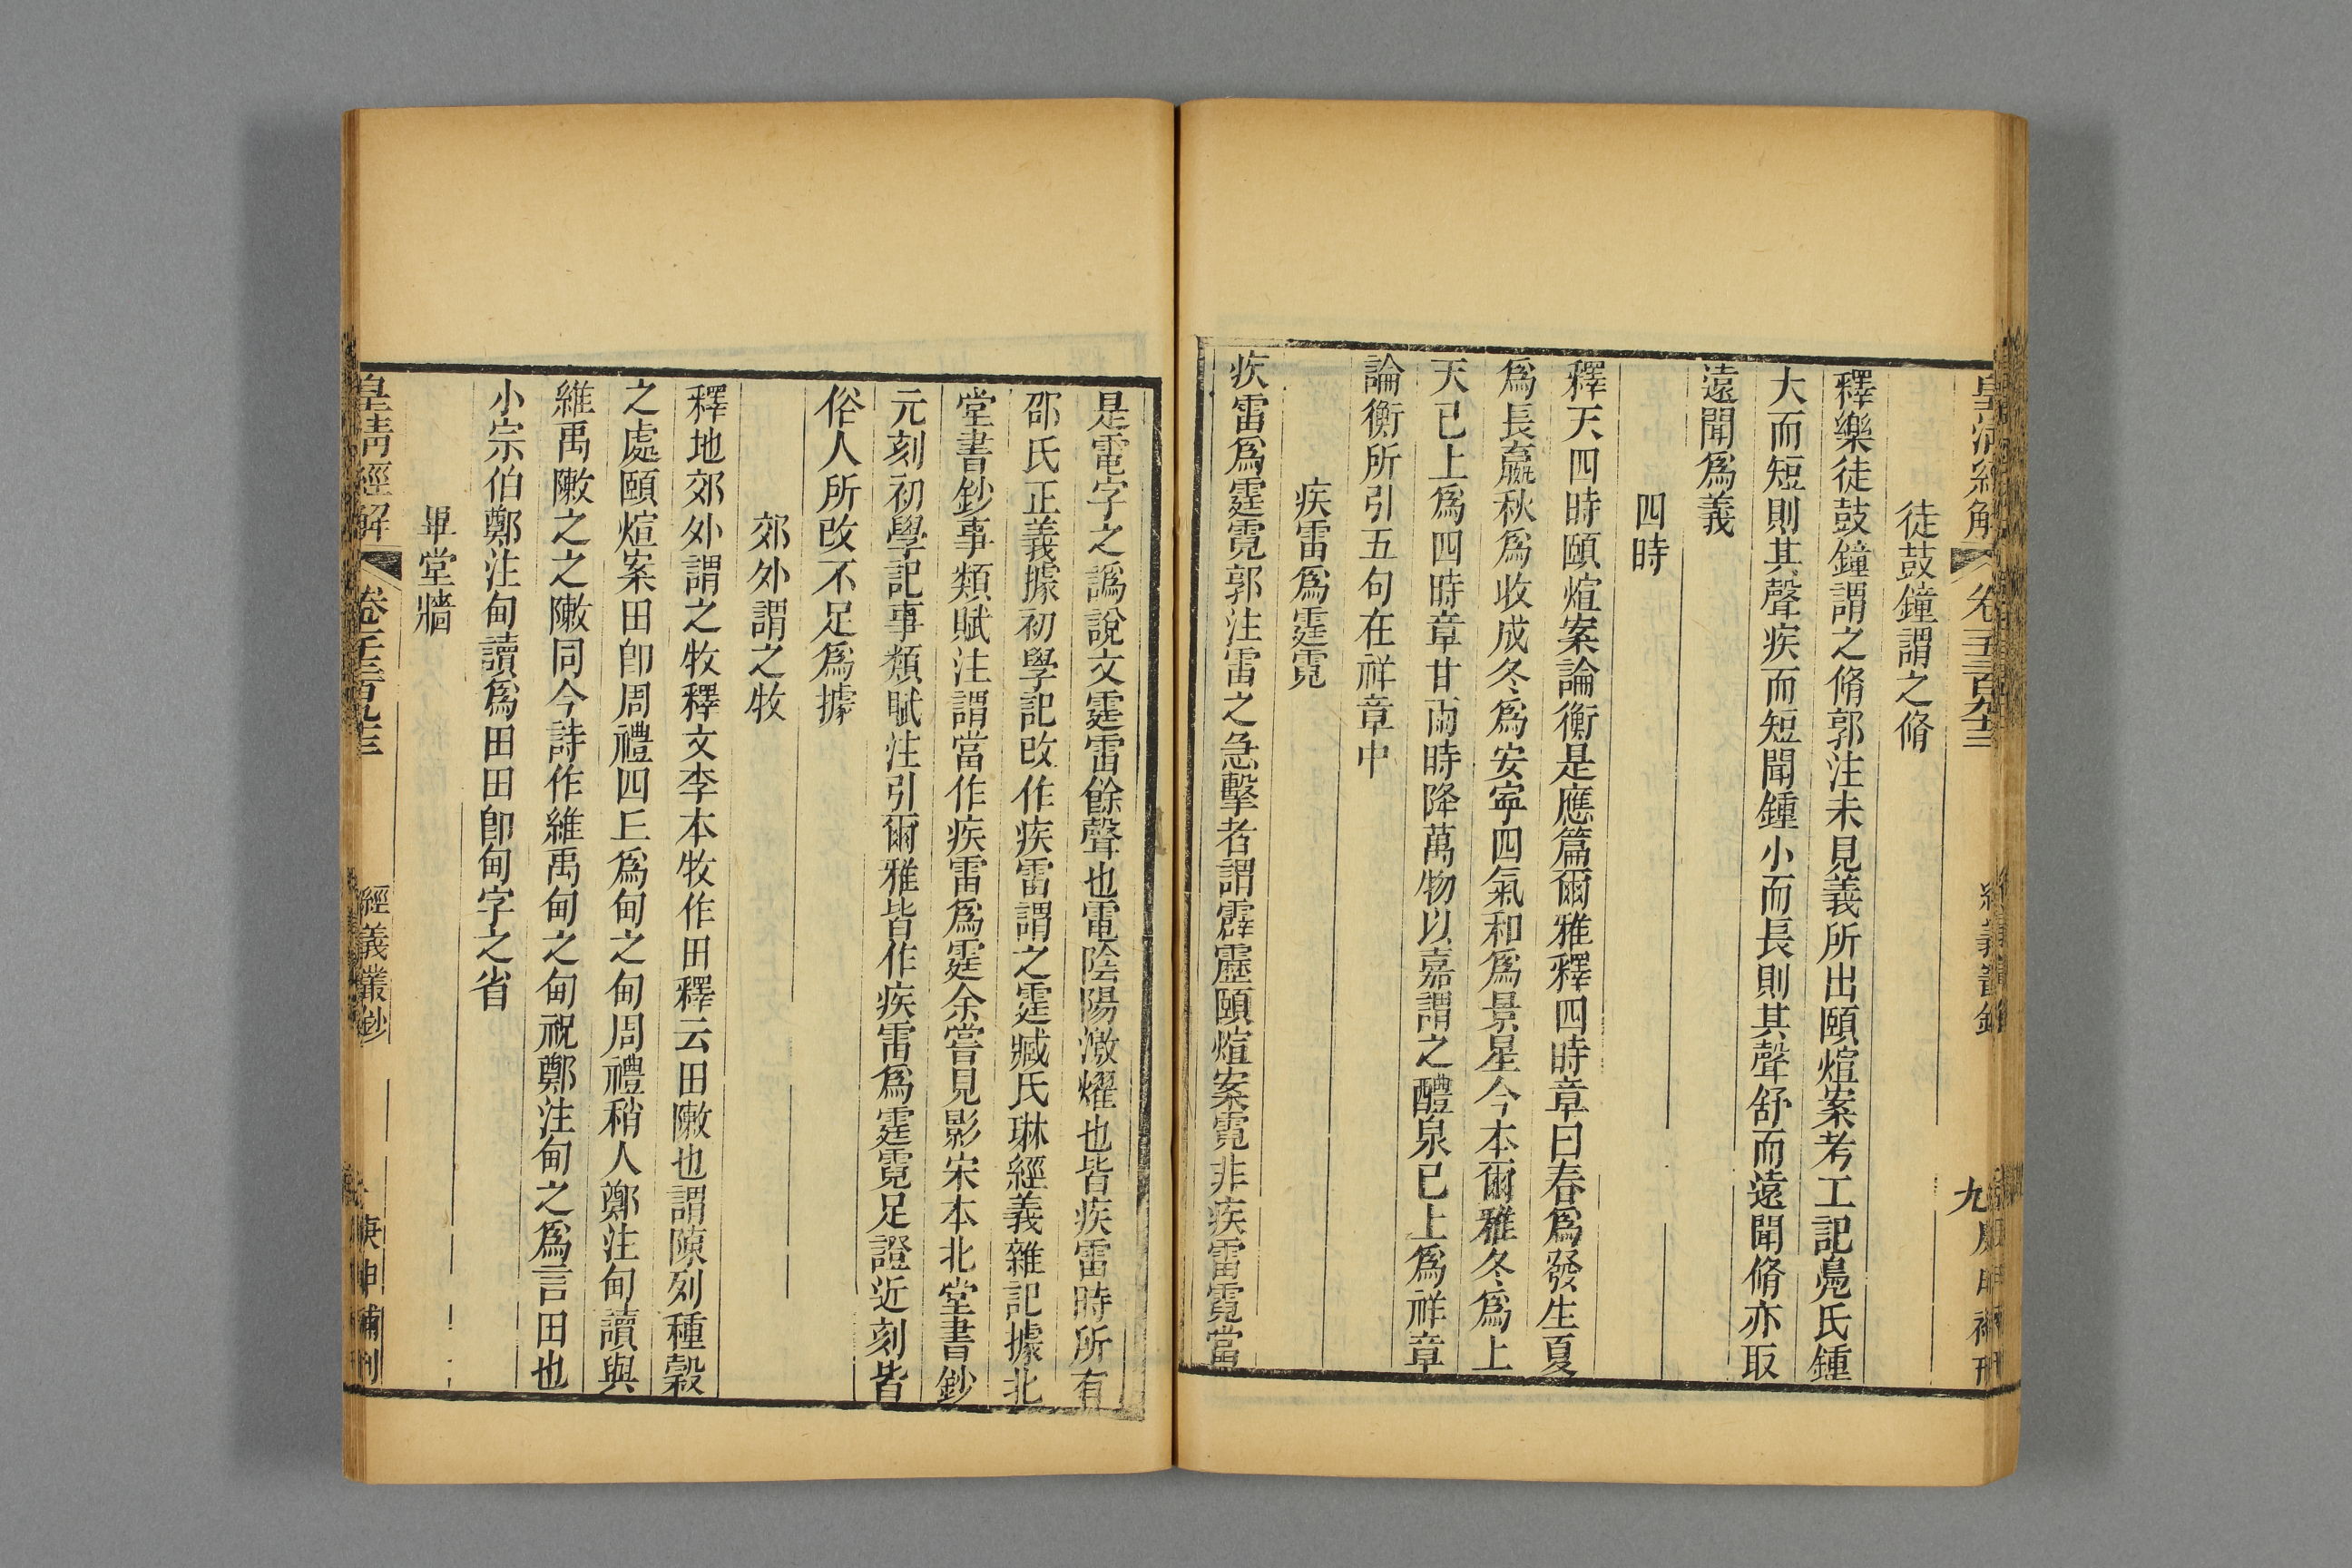 皇清經解
卷一千三百九十三
經義叢鈔
九
庚申補刊
徒鼓鐘謂之脩
釋樂徒鼓鐘謂之脩郭注未見義所出頤煊案考工記鳧氏鍾
大而短則其聲疾而短聞鍾小而長則其聲舒而遠聞脩亦取
遠聞爲義
四時
釋天四時頤煊案論衡是應篇爾雅釋四時章曰春爲發生夏
爲長嬴秋爲收成冬爲安寜四氣和爲景星今本爾雅冬爲上
天已上爲四時章甘雨時降萬物以嘉謂之醴泉已上爲祥章
論衡所引五句在祥章中
疾雷爲霆霓
疾雷爲霆霓郭注雷之急擊者謂霹靂頤煊案霓非疾雷霓當
是電字之譌說文霆雷餘聲也電陰陽激燿也皆疾雷時所有
邵氏正義據初學記改作疾雷謂之霆臧氏琳經義雜記據北
堂書鈔事類賦注謂當作疾雷爲霆余嘗見影宋本北堂書鈔
元刻初學記事類賦注引爾雅皆作疾雷爲霆霓足證近刻皆
俗人所改不足爲據
郊外謂之牧
釋地郊外謂之牧釋文李本牧作田釋云田敶也謂陳列種穀
之處頤煊案田卽周禮四丘爲甸之甸周禮稍人鄭注甸讀與
維禹敶之之敶同今詩作維禹甸之甸祝鄭注甸之爲言田也
小宗伯鄭注甸讀爲田田卽甸字之省
畢堂牆
皇清經解
卷一千三百九十三
經義叢鈔
庚申補刊